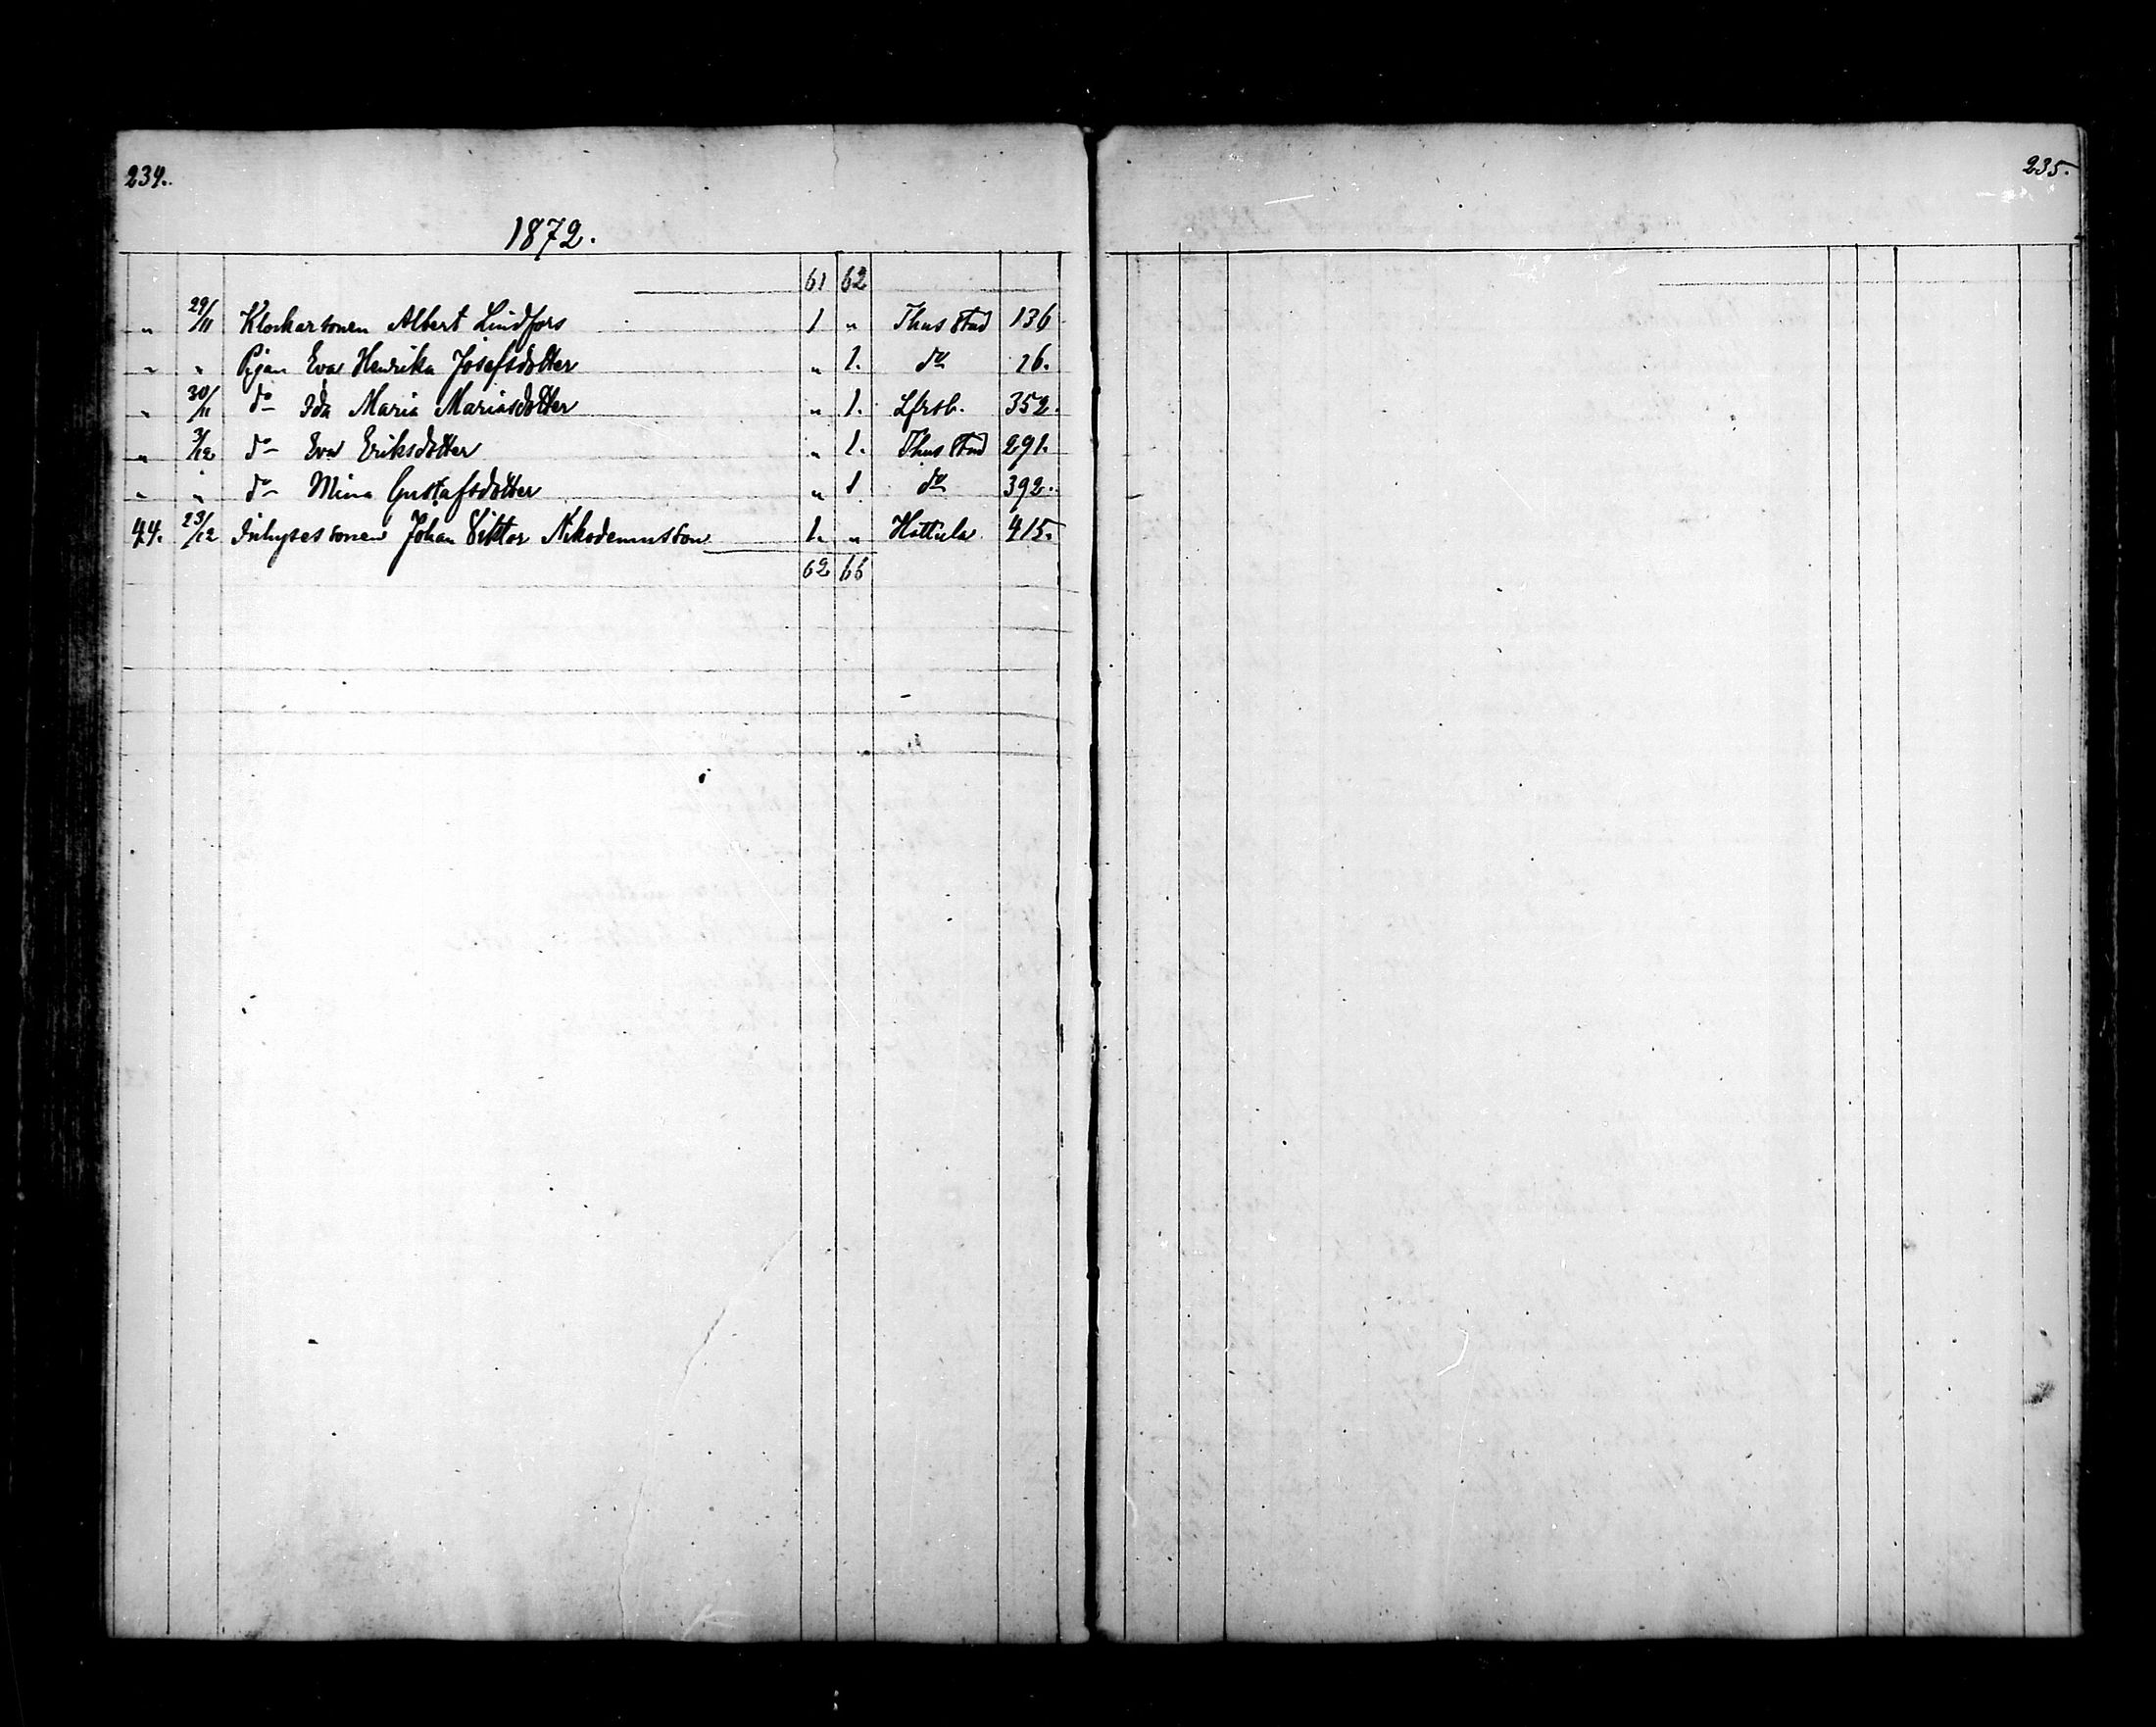 234.
235.
1872.
61 62
„ 29/11 Klockarsonen Albert Lindfors 1 „ Thus stad 136
„ „ Pigan Eva Henrika Josefsdotter „ 1. do 16.
„ 30/11 do Ida Maria Mariasdotter „ 1. Lfrsb. 352.
„ 3/12 do Eva Eriksdotter „ 1. Thus stad 291.
„ „ do Mina Gustafsdotter „ 1 do 392.
44. 23/12 Inhysessonen Johan Viktor Nikodemusson 1. „ Hattula 415.
62 66